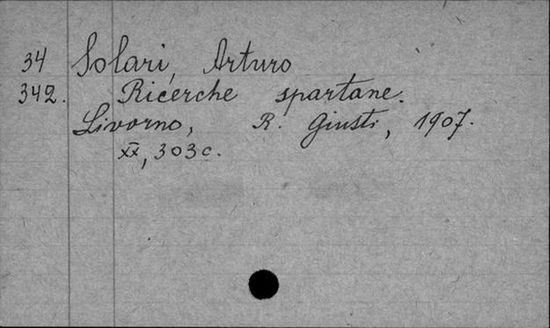 34 Solari, Arturo
342. Ricerche spartane.
Livorno, R. Giusti, 1907.
XX, 303 c.